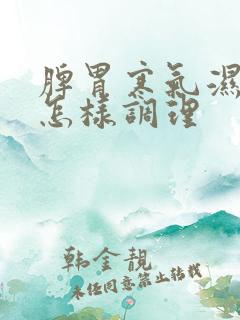 脾胃寒氣濕
怎樣調理
韩金靚
未经同意禁止转载